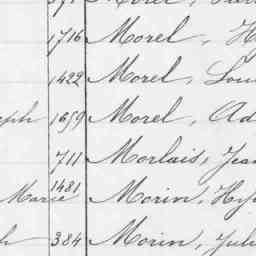 Morel,
1716 Morel, H
1422 Morel, Lou
eph 1659 Morel, Ad
711 Morlais, Jean
Marie 1481 Morin, Hyp
ph 384 Morin, Juli